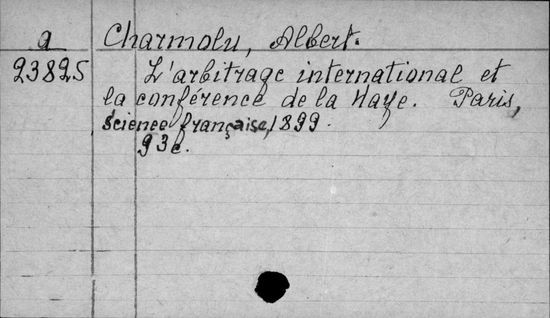 a Charmolu, Albert.
23825 L'arbitrage international et
la conférence de la Haye. Paris,
science française, 1899.
93c.